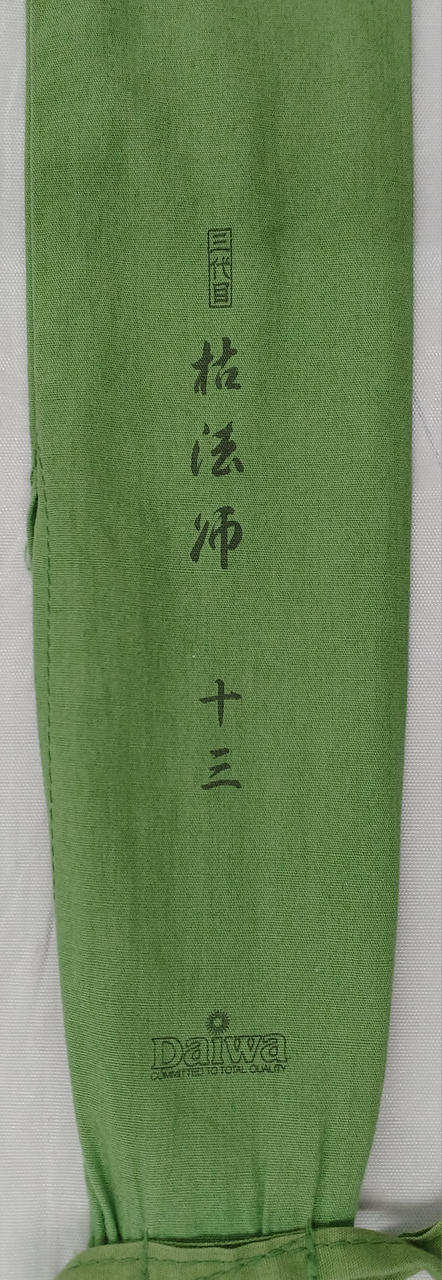 三代目
枯法师
十三
Daiwa
COMMITTED TO TOTAL QUALITY